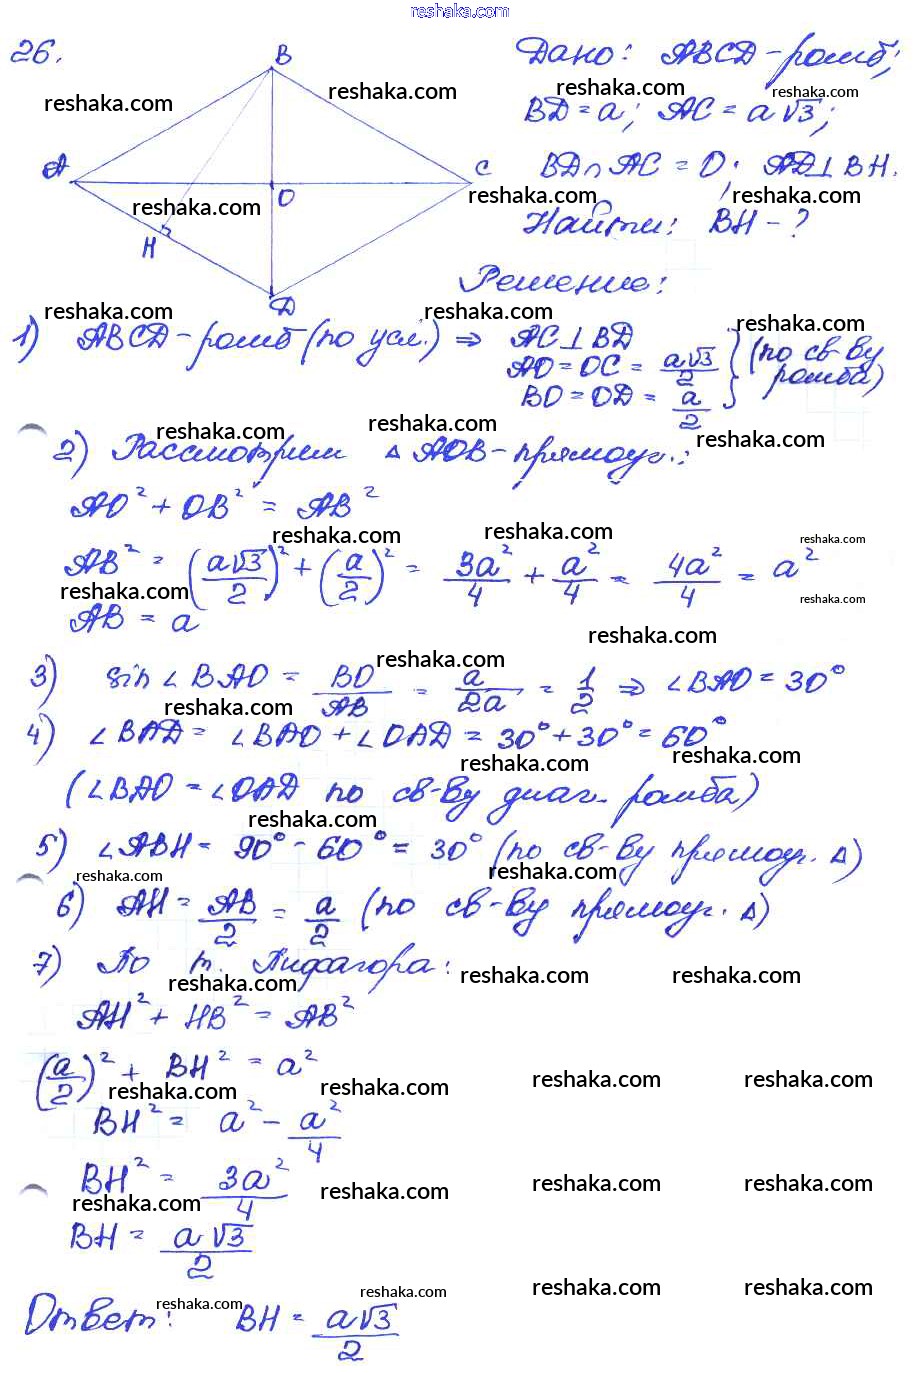 reshaka.com
26.
B
Дано: ABCD - ромб;
reshaka.com reshaka.com reshaka.com
BD = a; AC = a√3;
A
C
BD ∩ AC = O; AD ⊥ BH.
reshaka.com reshaka.com reshaka.com
O
H
Найти: BH - ?
D
Решение:
reshaka.com reshaka.com reshaka.com
1) ABCD - ромб (по усл.) ⇒ AC ⊥ BD
AO = OC = a√3/2
BO = OD = a/2
} (по св-ву ромба)
reshaka.com reshaka.com reshaka.com
2) Рассмотрим Δ AOB - прямоуг.:
AO² + OB² = AB²
reshaka.com reshaka.com reshaka.com
AB² = (a√3/2)² + (a/2)² = 3a²/4 + a²/4 = 4a²/4 = a²
reshaka.com reshaka.com
AB = a
reshaka.com
reshaka.com
3) sin ∠BAO = BO/AB = a/2a = 1/2 ⇒ ∠BAO = 30°
reshaka.com
4) ∠BAD = ∠BAO + ∠OAD = 30° + 30° = 60°
reshaka.com reshaka.com
(∠BAO = ∠OAD по св-ву диаг. ромба)
reshaka.com
5) ∠ABH = 90° - 60° = 30° (по св-ву прямоуг. Δ)
reshaka.com reshaka.com
6) AH = AB/2 = a/2 (по св-ву прямоуг. Δ)
7) По т. Пифагора:
reshaka.com reshaka.com reshaka.com
AH² + HB² = AB²
(a/2)² + BH² = a²
reshaka.com reshaka.com reshaka.com reshaka.com
BH² = a² - a²/4
BH² = 3a²/4
reshaka.com reshaka.com reshaka.com reshaka.com
BH = a√3/2
reshaka.com reshaka.com reshaka.com reshaka.com
Ответ: BH = a√3/2